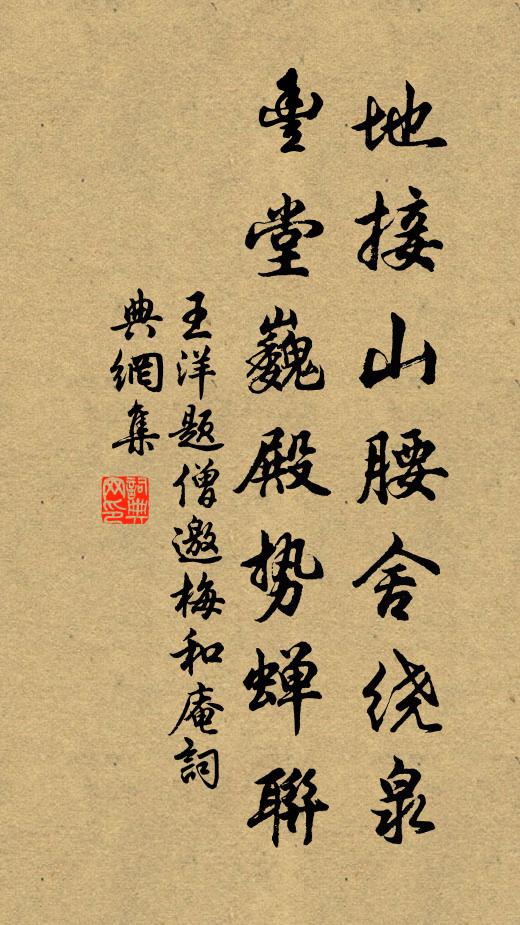 地接山腰舍绕泉
丰堂巍殿势蝉联
王洋题僧邀梅和庵詞
典網集
詞典網印